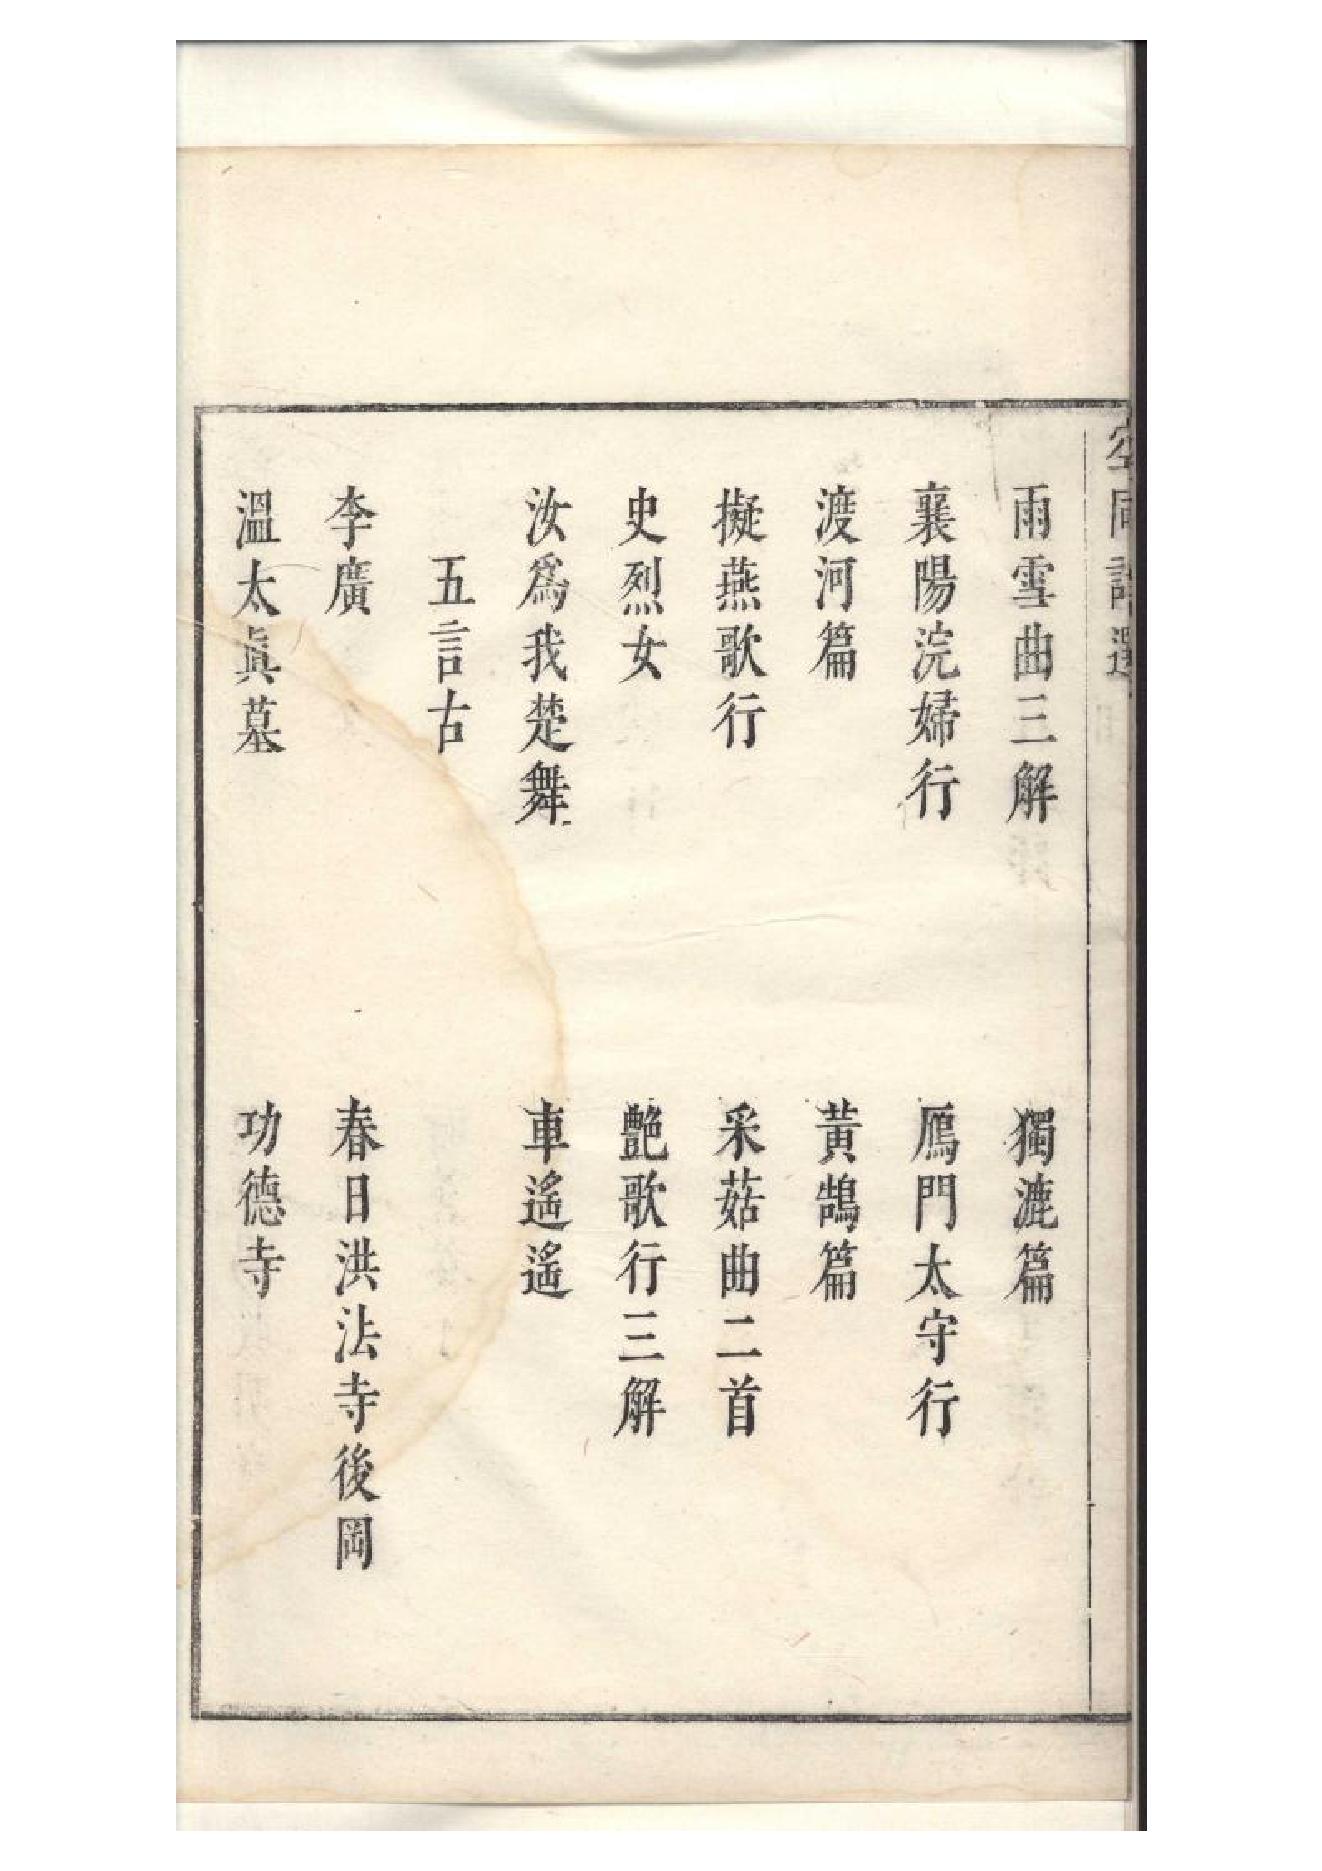 空同詩選
雨雪曲三解　獨漉篇
襄陽浣婦行　鴈門太守行
渡河篇　黃鵠篇
擬燕歌行　采菇曲二首
史烈女　艷歌行三解
汝爲我楚舞　車遙遙
五言古
李廣　春日洪法寺後岡
溫太眞墓　功德寺